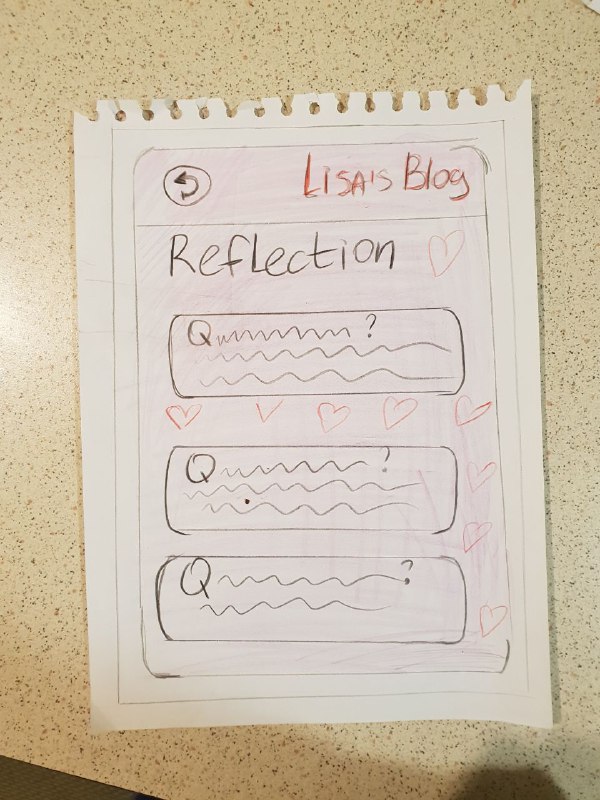 Lisa's Blog
Reflection
Q ?
Q ?
Q ?